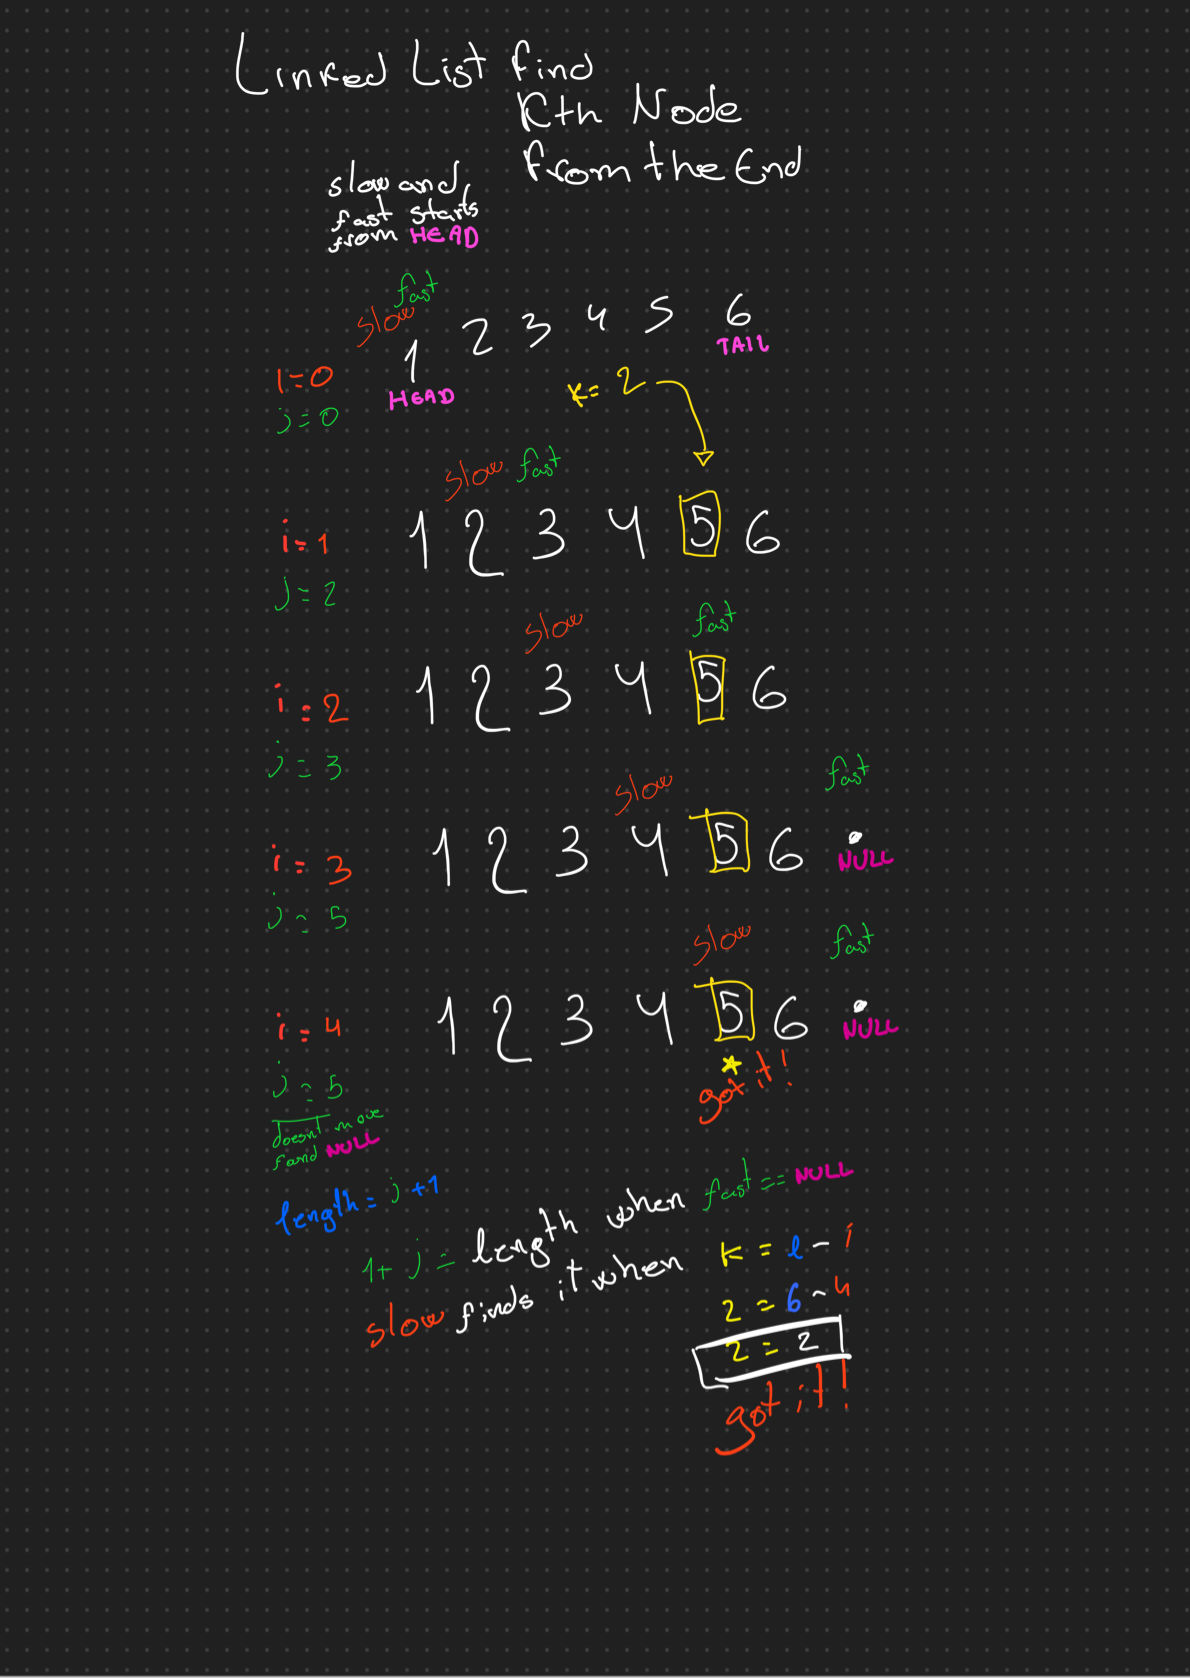 Linked List find
Kth Node
from the End
slow and
fast starts
from HEAD
fast
slow
1 2 3 4 5 6
HEAD
TAIL
i=0
j=0
k=2
slow fast
i=1
1 2 3 4 5 6
j=2
slow fast
i=2
1 2 3 4 5 6
j=3
slow fast
i=3
1 2 3 4 5 6
NULL
j=5
slow fast
i=4
1 2 3 4 5 6
NULL
got it!
j=5
doesn't move
NULL
length = j+1
1+j = length when fast == NULL
slow finds it when k = l - i
2 = 6 - 4
2 = 2
got it!